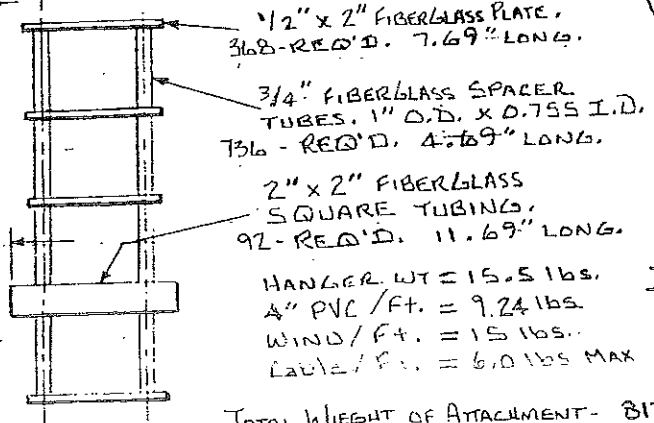 1/2" x 2" FIBERGLASS PLATE.
368-REQ'D. 7.69" LONG.
3/4" FIBERGLASS SPACER
TUBES. 1" O.D. x 0.755 I.D.
736 - REQ'D. 4.69" LONG.
2" x 2" FIBERGLASS
SQUARE TUBING.
92-REQ'D. 11.69" LONG.
HANGER WT = 15.5 lbs.
4" PVC /Ft. = 9.24 lbs.
WIND/Ft. = 15 lbs.
Cable/Ft. = 6.0 lbs MAX
TOTAL WIEGHT OF ATTACHMENT-